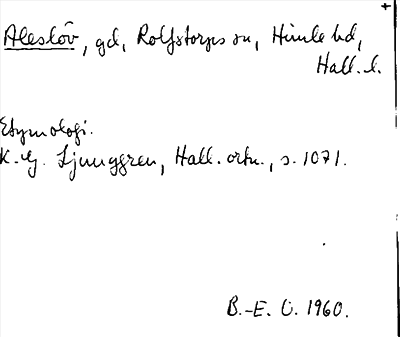 Aleslöv, gd, Rolfstorps sn, Himle hd,
Hall. l.
Etymologi.
K. G. Ljunggren, Hall. ortn., s. 1071.
B.-E. O. 1960.